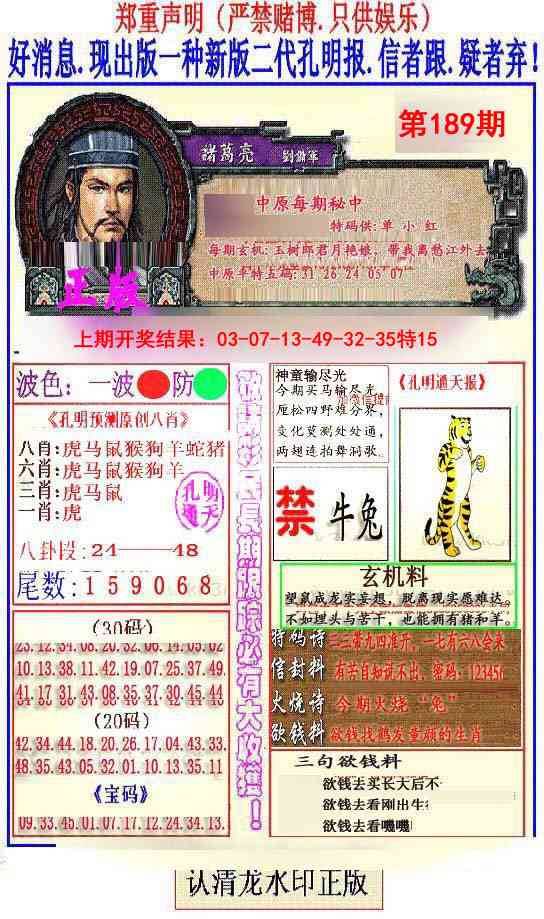 郑重声明（严禁赌博.只供娱乐）
好消息.现出版一种新版二代孔明报.信者跟.疑者弃！
第189期
諸葛亮
中原每期秘中
特码供:单 小 红
每期玄机:玉树郎君月艳娘，带我离愁江外去
中原平特五码:31 26 24 05 07
正版
上期开奖结果：03-07-13-49-32-35特15
波色：一波 防
《孔明预测原创八肖》
八肖:虎马鼠猴狗羊蛇猪
六肖:虎马鼠猴狗羊
三肖:虎马鼠
一肖:虎
孔明通天
八卦段:24——48
尾数:159068
神童输尽光
今期买马输尽光
变化莫测处处通,
两翅连拍舞洞歌.
《孔明通天报》
禁 牛兔
玄机料
望鼠成龙实妄想，脱离现实愿难达。
不如埋头与苦干，也能拥有猪和羊。
(30码)
23.12.34.08.20.32.06.14.05.02
10.13.38.11.42.19.07.25.37.49.
41.17.31.43.08.35.37.30.45.44
(20码)
42,34,44.18.20.26.17.04.43.33.
48.35.43.05.32.01.10.13.35.11
《宝码》
09.33.45.01.07.17.12.24.34.13.
特码诗 二三带九四准开，一七有六八会来
信封料 有苦自知说不出，密码：123456
火烧诗 今期火烧“兔”
欲钱料 欲钱找鹤发童颜的生肖
三句欲钱料
欲钱去买长大后不
欲钱去看刚出生
欲钱去看嘰嘰
认清龙水印正版